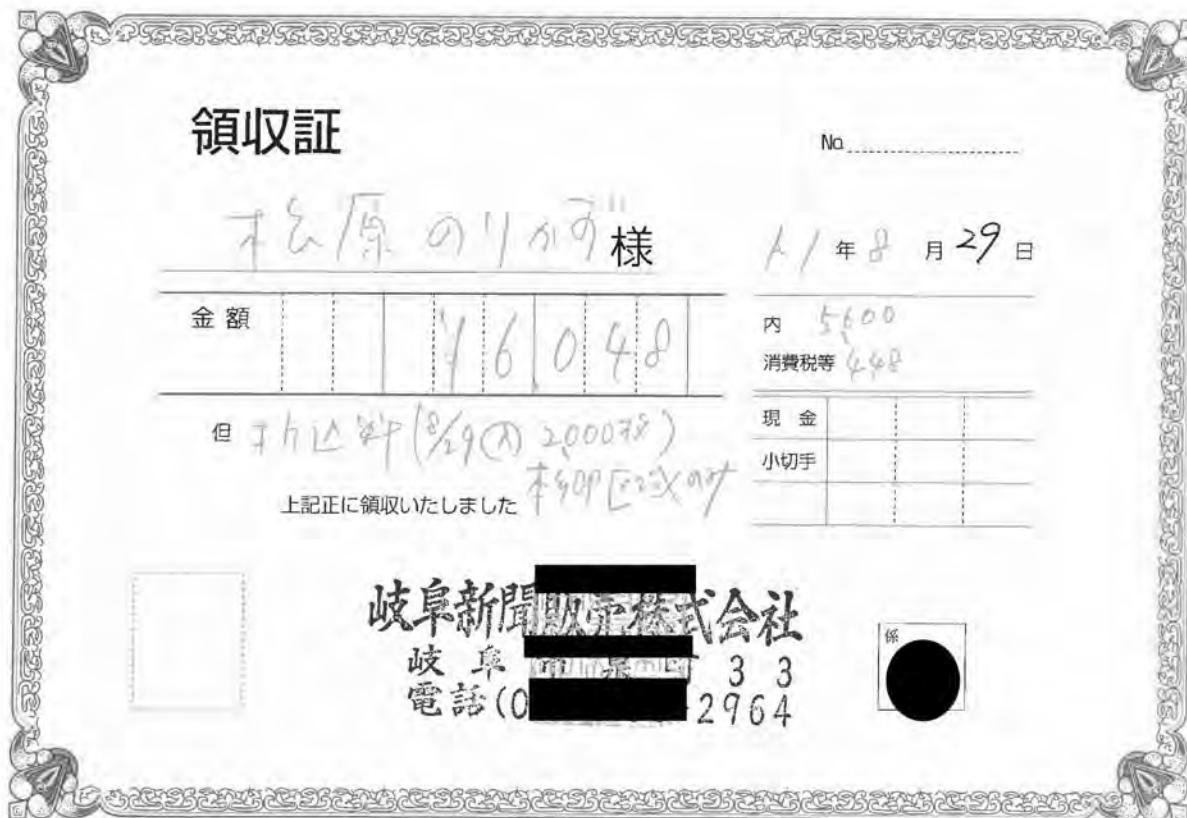 領収証
No.
松原のりかず様
R1年8月29日
金額 ¥6048
内 5600
消費税等 448
但 折込料(8/29(木) 2,000枚)
現金
小切手
上記正に領収いたしました
係
岐阜新聞販売株式会社
岐阜市 33
電話(0 2964